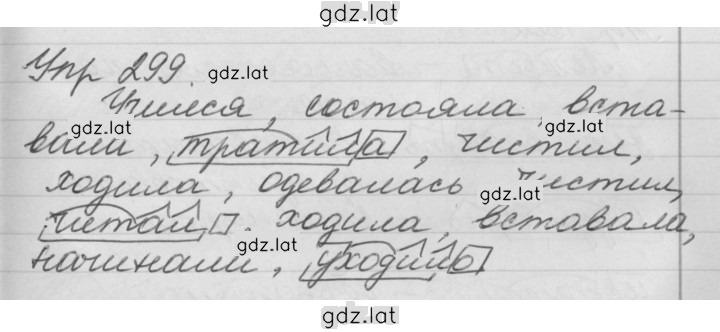 gdz.lat
Упр 299.
gdz.lat
Учился, состояла, вста-
gdz.lat gdz.lat
вали, тратила, чистил,
gdz.lat
ходила, одевалась чистил,
gdz.lat
читал. ходила, вставала,
gdz.lat
начинали, уходило
gdz.lat